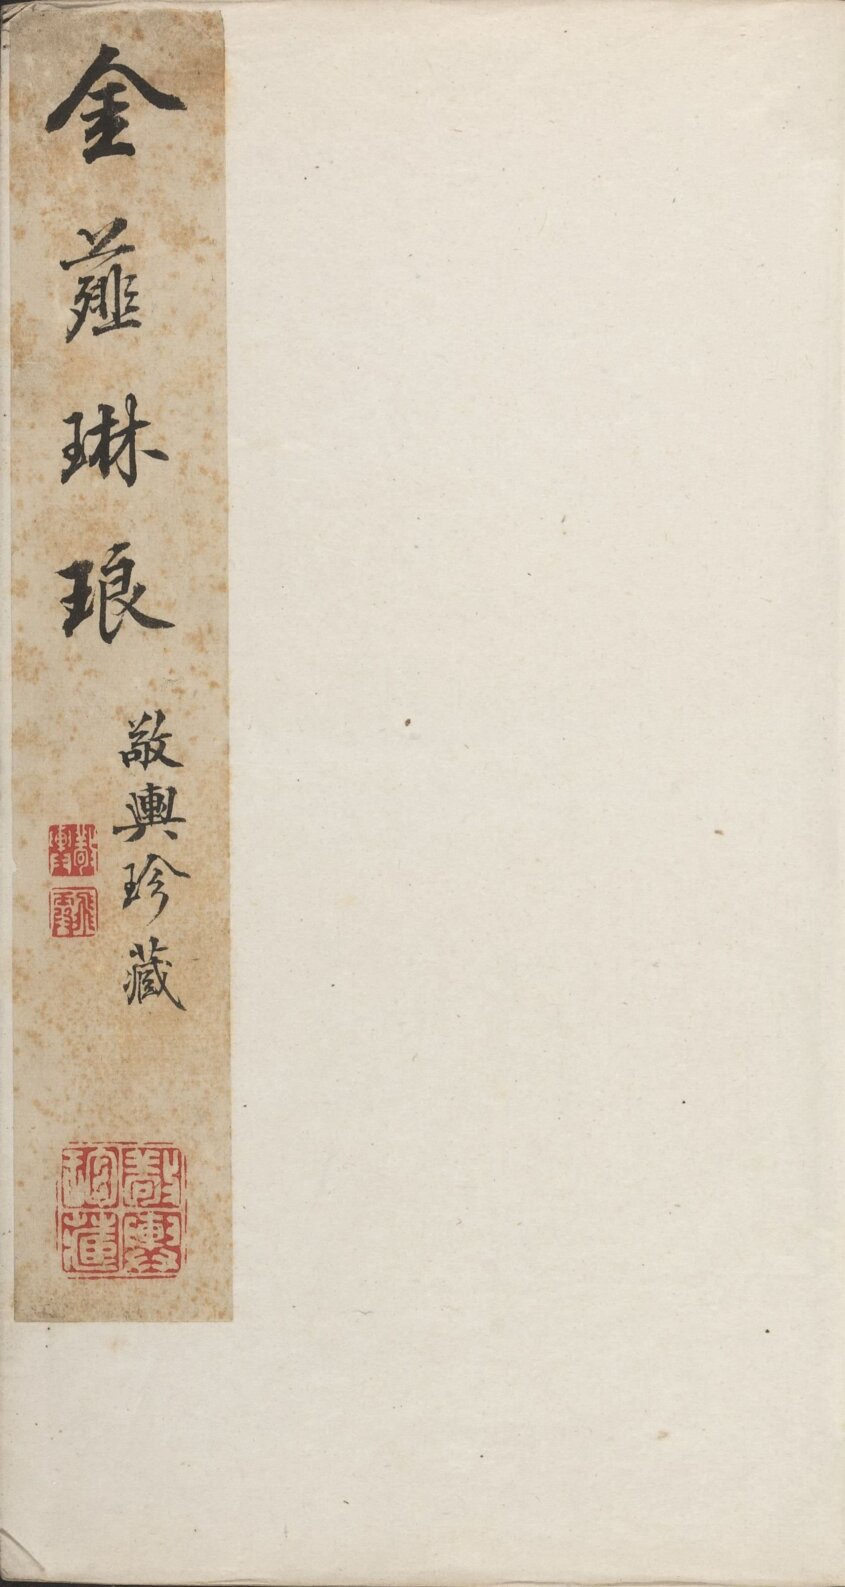 金薤琳琅
敬輿珍藏